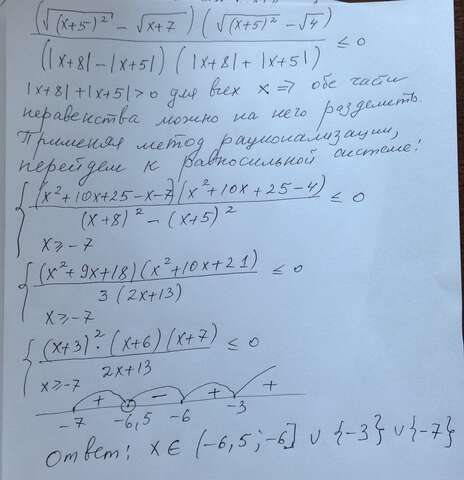 (√(x+5)² - √x+7) (√(x+5)² - √4)
(|x+8| - |x+5|) (|x+8| + |x+5|) ≤ 0
|x+8| + |x+5| > 0 для всех x ⇒ обе части
неравенства можно на него разделить.
Применяя метод рационализации,
перейдем к равносильной системе:
(x²+10x+25-x-7)(x²+10x+25-4)
(x+8)² - (x+5)² ≤ 0
x ≥ -7
(x²+9x+18)(x²+10x+21)
3(2x+13) ≤ 0
x ≥ -7
(x+3)²·(x+6)(x+7)
2x+13 ≤ 0
x ≥ -7
+ - + +
-7 -6,5 -6 -3
Ответ: x ∈ (-6,5; -6] ∪ {-3} ∪ {-7}